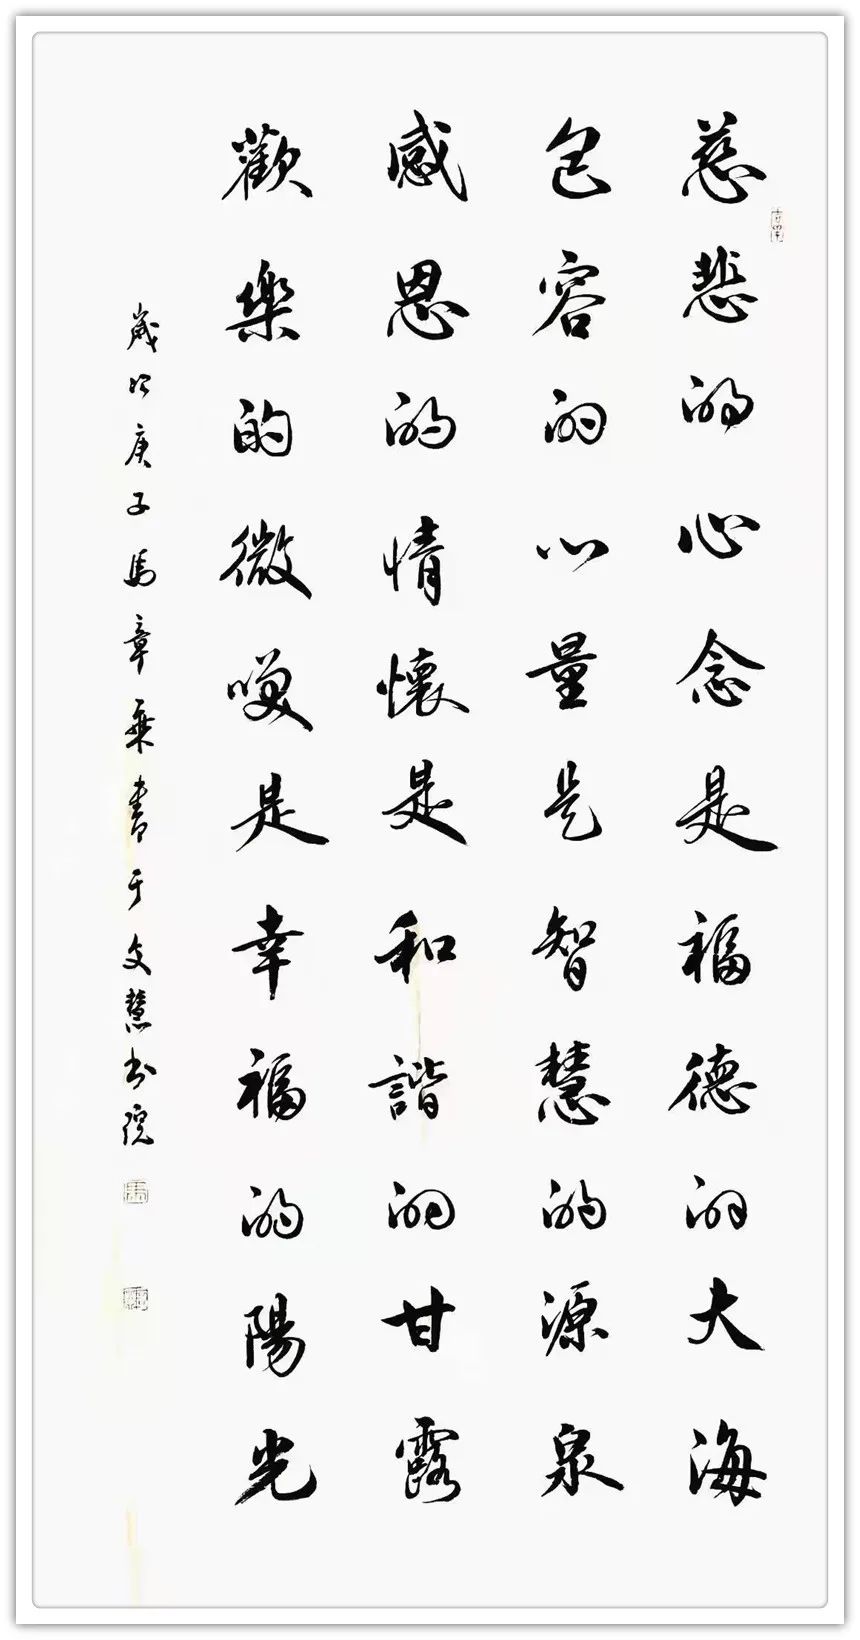 慈悲的心念是福德的大海
包容的心量是智慧的源泉
感恩的情懷是和諧的甘露
歡樂的微笑是幸福的陽光
歲次庚子馬章乘書于文慧书院